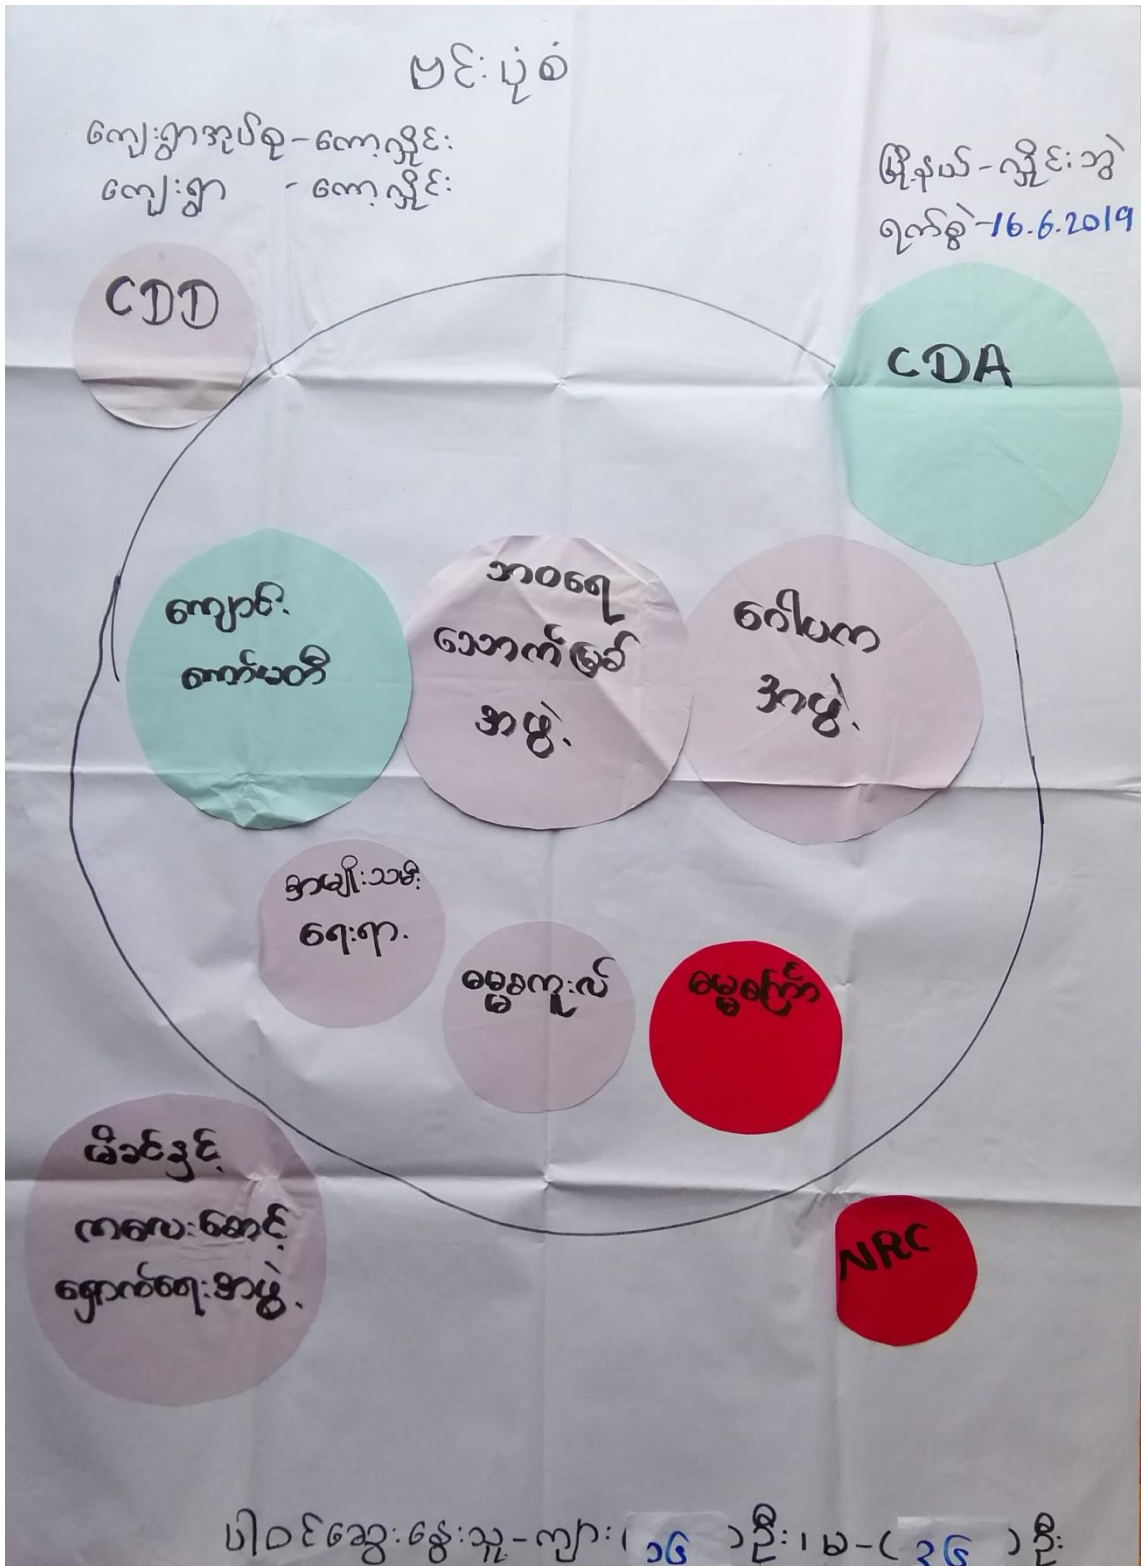 ဗင်းပုံစံ
ကျေးရွာအုပ်စု-ကော့လှိုင်း
ကျေးရွာ - ကော့လှိုင်း
မြို့နယ်-လှိုင်းဘွဲ
ရက်စွဲ-16.6.2019
CDD
CDA
ကျောင်း
ကော်မတီ
ဘဝရေ
သောက်မြစ်
အဖွဲ့
ဂေါပက
အဖွဲ့
အမျိုးသမီး
ရေးရာ
ဓမ္မစကူးလ်
ဓမ္မစကြာ
မိခင်နှင့်
ကလေးစောင့်
ရှောက်ရေးအဖွဲ့
NRC
ပါဝင်ဆွေးနွေးသူ-ကျား(၁၆)ဦး၊မ-(၃၆)ဦး